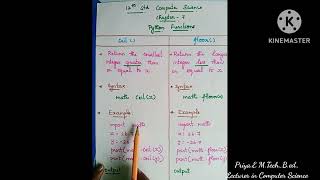 12th Std Computer Science
Chapter - 7
Python Functions
Ceil ( )
floor( )
→ Returns the smallest
integer greater than
or equal to x
→ Returns the largest
integer less than
or equal to x.
→ Syntax
math.ceil(x)
→ Syntax
math.floor(x)
→ Example
import math
x = 26.7
y = -26.7
print(math.ceil(x))
print(math.ceil(y))
→ Example
import math
x = 26.7
y = -26.7
print(math.floor(x))
print(math.floor(y))
output
output
KINEMASTER
Priya E M.Tech.,B.ed.,
Lecturer in Computer Science